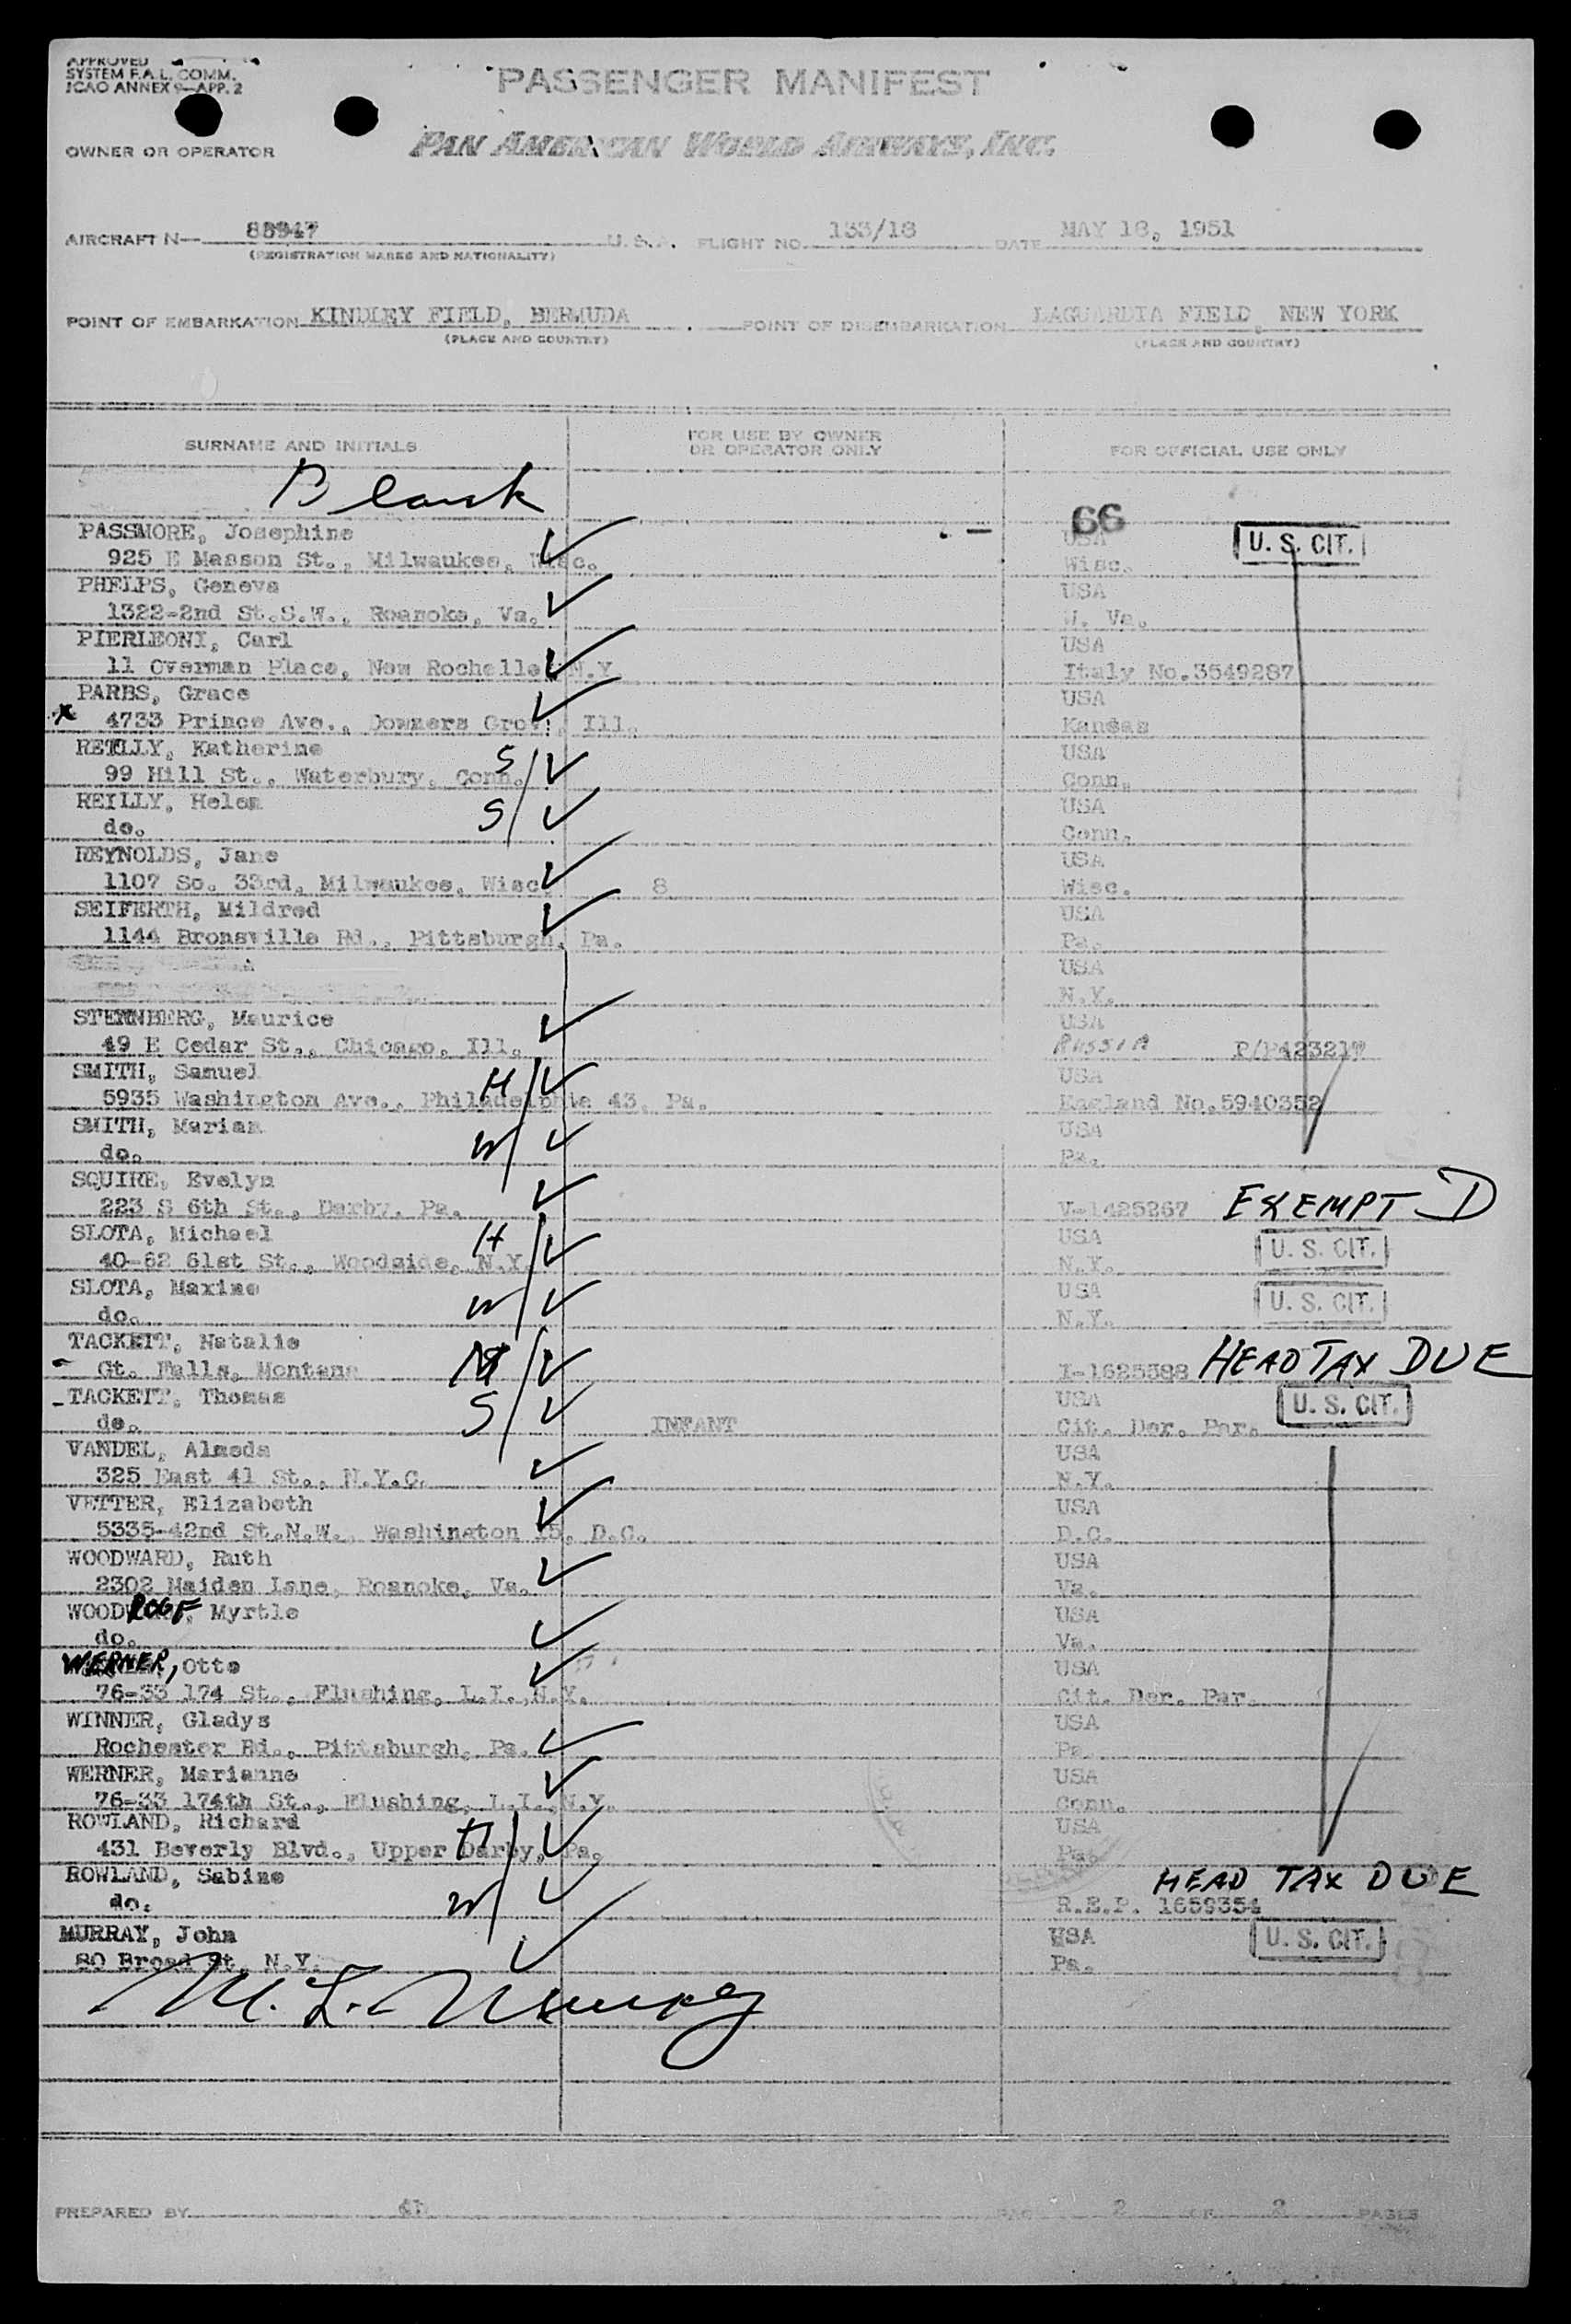 APPROVED
SYSTEM F.A.L. COMM.
ICAO ANNEX 9-APP. 2
PASSENGER MANIFEST
OWNER OR OPERATOR PAN AMERICAN WORLD AIRWAYS, INC.
AIRCRAFT N- 88947 U.S.A. FLIGHT NO. 133/18 DATE MAY 18, 1951
(REGISTRATION MARKS AND NATIONALITY)
POINT OF EMBARKATION KINDLEY FIELD, BERMUDA POINT OF DISEMBARKATION LAGUARDIA FIELD, NEW YORK
(PLACE AND COUNTRY) (PLACE AND COUNTRY)
SURNAME AND INITIALS FOR USE BY OWNER OR OPERATOR ONLY FOR OFFICIAL USE ONLY
Blank
66
PASSMORE, Josephine USA U. S. CIT.
925 E Masson St., Milwaukee, Wisc. Wisc.
PHELPS, Geneva USA
1322-2nd St.S.W., Roanoke, Va. W. Va.
PIERLEONI, Carl USA
11 Overman Place, New Rochelle, N.Y. Italy No.3549287
PARBS, Grace USA
x 4733 Prince Ave., Downers Grov., Ill. Kansas
REILLY, Katherine S USA
99 Hill St., Waterbury, Conn. Conn.
REILLY, Helen S USA
do. Conn.
REYNOLDS, Jane USA
1107 So. 33rd, Milwaukee, Wisc. 8 Wisc.
SEIFERTH, Mildred USA
1144 Bronsville Rd., Pittsburgh, Pa. Pa.
USA
N.Y.
STERNBERG, Maurice USA
49 E Cedar St., Chicago, Ill. RUSSIA P/P423217
SMITH, Samuel H USA
5935 Washington Ave., Philadelphia 43, Pa. England No.5940352
SMITH, Marian W USA
do. Pa.
SQUIRE, Evelyn
223 S 6th St., Darby, Pa. V-1425267 EXEMPT D
SLOTA, Michael H USA U. S. CIT.
40-62 61st St., Woodside, N.Y. N.Y.
SLOTA, Maxine W USA U. S. CIT.
do. N.Y.
TACKETT, Natalie
Gt. Falls, Montana M I-1625388 HEAD TAX DUE
TACKETT, Thomas S USA U. S. CIT.
do. INFANT Cit. Der. Par.
VANDEL, Almeda USA
325 East 41 St., N.Y.C. N.Y.
VETTER, Elizabeth USA
5335-42nd St.N.W., Washington 15, D.C. D.C.
WOODWARD, Ruth USA
2302 Maiden Lane, Roanoke, Va. Va.
WOODROOF, Myrtle USA
do. Va.
WERNER, Otto USA
76-33 174 St., Flushing, L.I.,N.Y. Cit. Der. Par.
WINNER, Gladys USA
Rochester Rd., Pittsburgh, Pa. Pa.
WERNER, Marianne USA
76-33 174th St., Flushing, L.I.,N.Y. Conn.
ROWLAND, Richard H USA
431 Beverly Blvd., Upper Darby, Pa. Pa.
ROWLAND, Sabine W HEAD TAX DUE
do. R.E.P. 1659354
MURRAY, John USA U. S. CIT.
80 Broad St. N.Y. Pa.
PREPARED BY PAGE 2 OF 2 PAGES